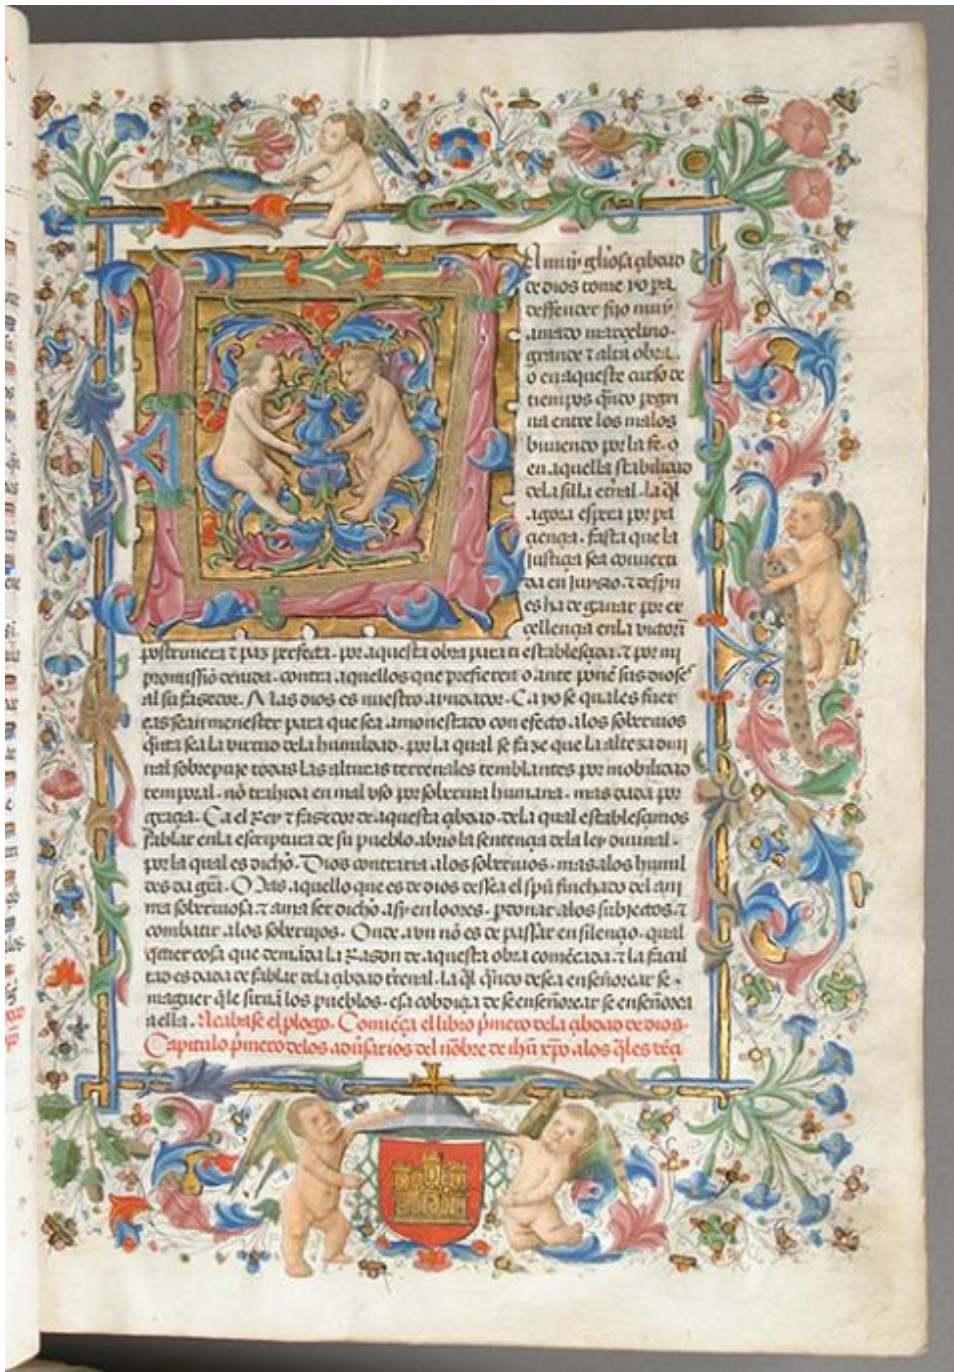 El muy gl'iosa çibdad
de dios tome yo pa
deffender fijo muy
amado marçelino.
grande τ alta obra.
o en aqueste curso de
tiempos q̃ndo pegri
na entre los malos
biuiendo por la fe. o
en aquella stabilidad
dela silla et̃nal. la q̃l
agora espera por pa
çiençia. fasta que la
justiçia sea conuerti
da en juysio. τ despu
es ha de ganar por ex
çellençia enla victori
postrimera τ paz perfecta. por aquesta obra para ti establesçida. τ por mi
promissiõ deuida. contra aquellos que prefieren o ante ponẽ sus dioses
al su fasedor. Mas dios es nuestro ayudador. Ca yo se quales fuer
ças sean menester para que sea amonestado con efecto alos soberuios
q̃nta sea la virtud dela humildad. por la qual se faze que la alteza diui
nal sobrepuje todas las alturas terrenales temblantes por mobilidad
temporal. nõ trahida en mal vso por soberuia humana. mas dada por
graçia. Ca el Rey τ fasedor de aquesta çibdad. dela qual establesçimos
fablar enla escriptura de su pueblo. abrio la sentençia dela ley diuinal.
por la qual es dicho. Dios contraria alos soberuios. mas alos humil
des da gr̃a. Mas aquello que es de dios dessea el spũ finchado del ani
ma soberuiosa. τ ama ser dicho asy en loores. perdonar alos subjectos. τ
combatir alos soberuios. Onde avn nõ es de passar en silençio. qual
quier cosa que demãda la Razon de aquesta obra comẽçada. τ la facul
tad es dada de fablar dela çibdad t̃renal. la q̃l q̃ndo desea enseñorear se.
maguer q̃ le siruã los pueblos. esa cobdiçia de se enseñorear se enseñorea
a ella. Acabase el p̃logo. Comiẽça el libro p̃mero dela çibdad de dios.
Capitulo p̃mero delos adũsarios del nõbre de ihũ xp̃o alos q̃les